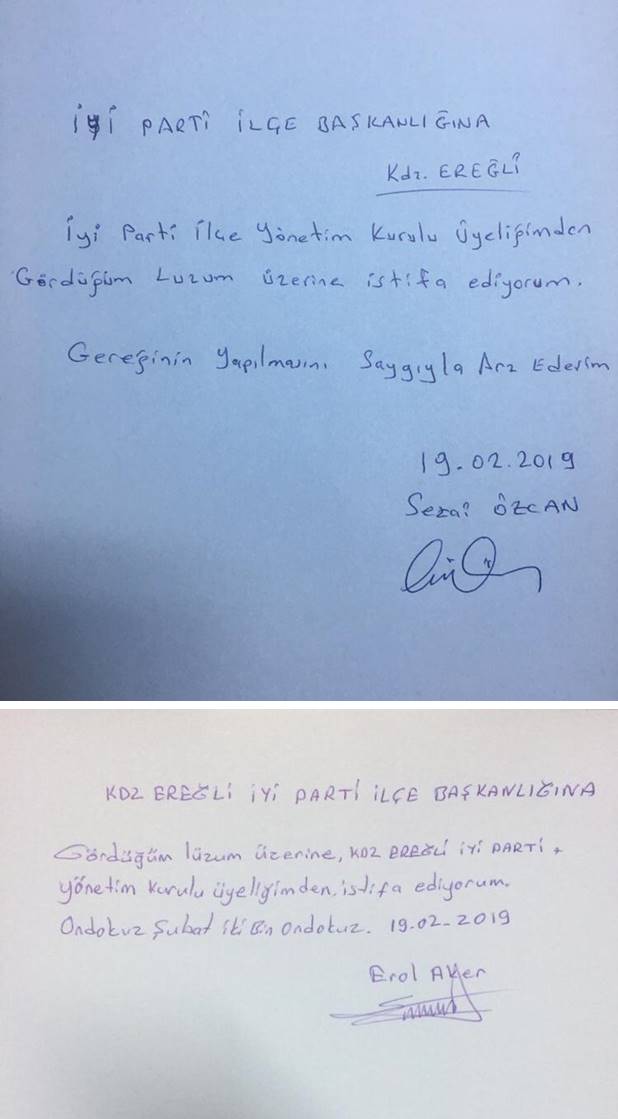 İYİ PARTİ İLÇE BAŞKANLIĞINA
Kdz. EREĞLİ
İyi Parti İlçe Yönetim Kurulu Üyeliğimden
Gördüğüm Luzum üzerine istifa ediyorum.
Gereğinin Yapılmasını Saygıyla Arz Ederim
19.02.2019
Sezai ÖZCAN
KDZ EREĞLİ İYİ PARTİ İLÇE BAŞKANLIĞINA
Gördüğüm lüzum üzerine, KDZ EREĞLİ İYİ PARTİ
yönetim kurulu üyeliğimden, istifa ediyorum.
Ondokuz Şubat iki Bin ondokuz. 19-02-2019
Erol